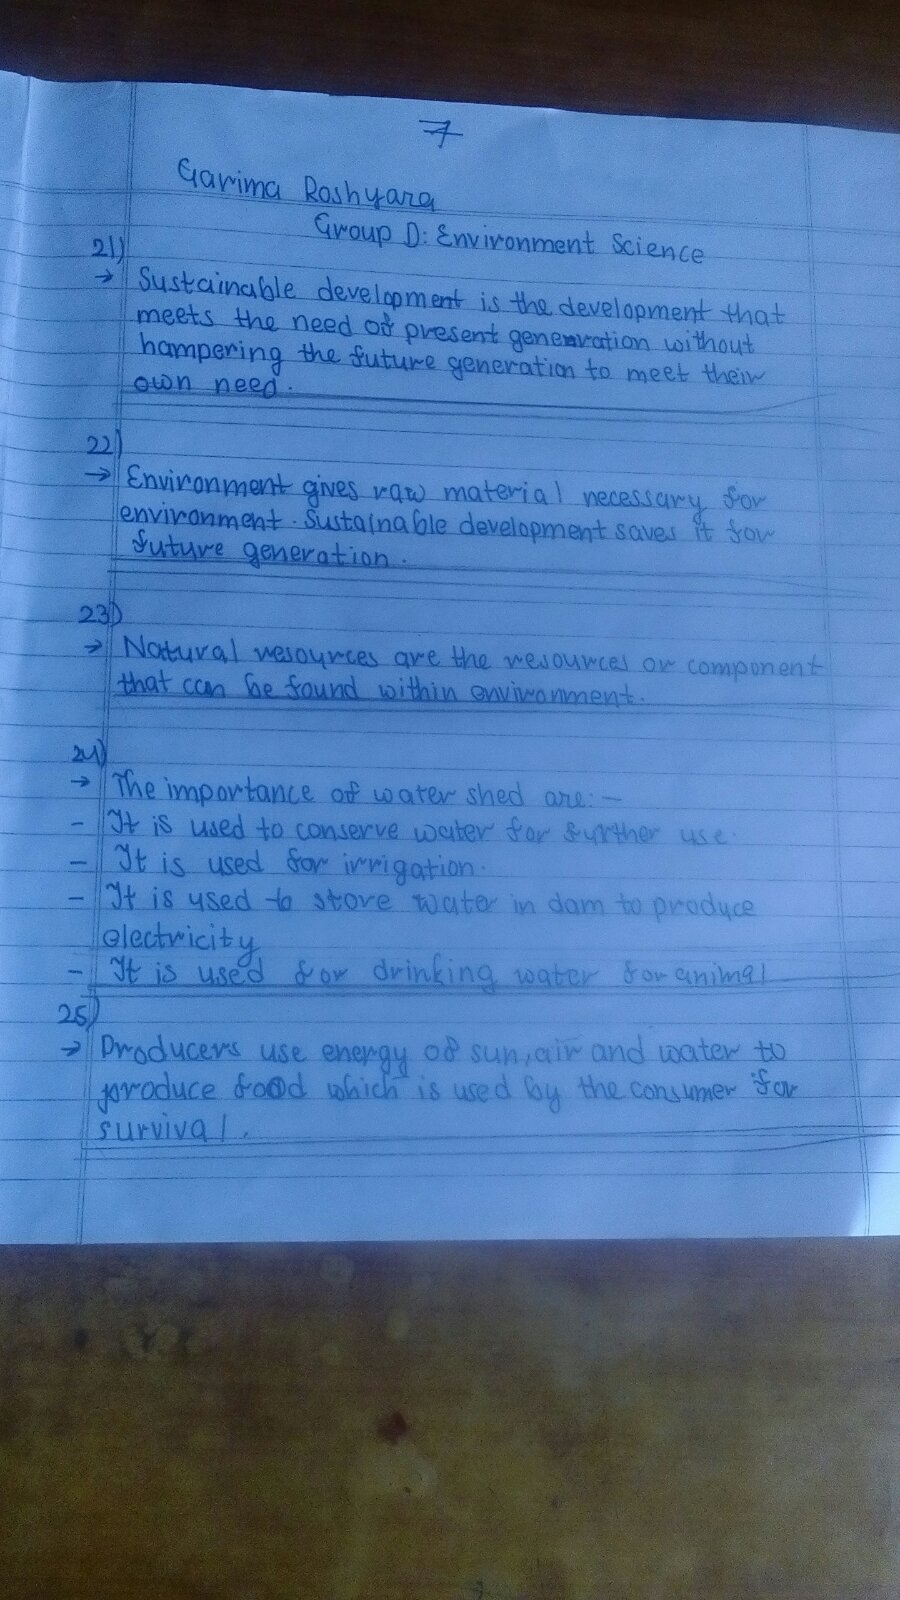 7
Garima Roshyara
Group D: Environment Science
21)
→ Sustainable development is the development that
meets the need of present generation without
hampering the future generation to meet their
own need.
22)
→ Environment gives raw material necessary for
environment. Sustainable development saves it for
future generation.
23)
→ Natural resources are the resources or component
that can be found within environment.
24)
→ The importance of water shed are:-
- It is used to conserve water for further use.
- It is used for irrigation.
- It is used to store water in dam to produce
electricity
- It is used for drinking water for animal
25)
→ Producers use energy of sun, air and water to
produce food which is used by the consumer for
survival.